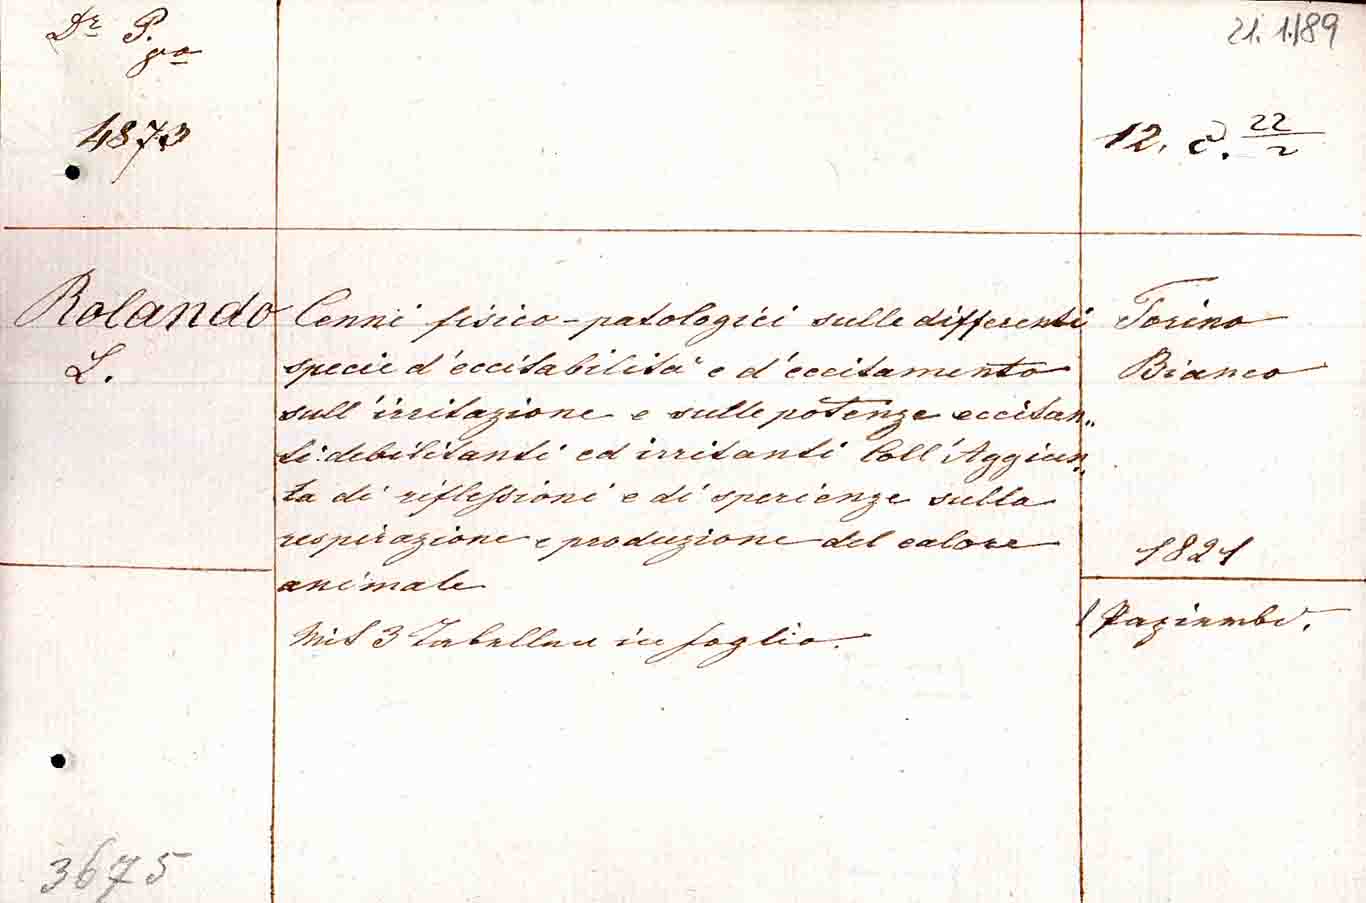 Dr P.
go
4873
21.1.189
12. c. 22/2
Rolando
L.
Cenni fisico-patologici sulle differenti
specie d'eccitabilità e d'eccitamento
sull'irritazione e sulle potenze eccitan„
ti: debilitanti ed irritanti Coll'Aggiun„
ta di riflessioni e di sperienze sulla
respirazione e produzione del calore
animale
Mit 3 Tabellen in foglio.
Torino
Bianco
1821
1 Papierbd.
3675